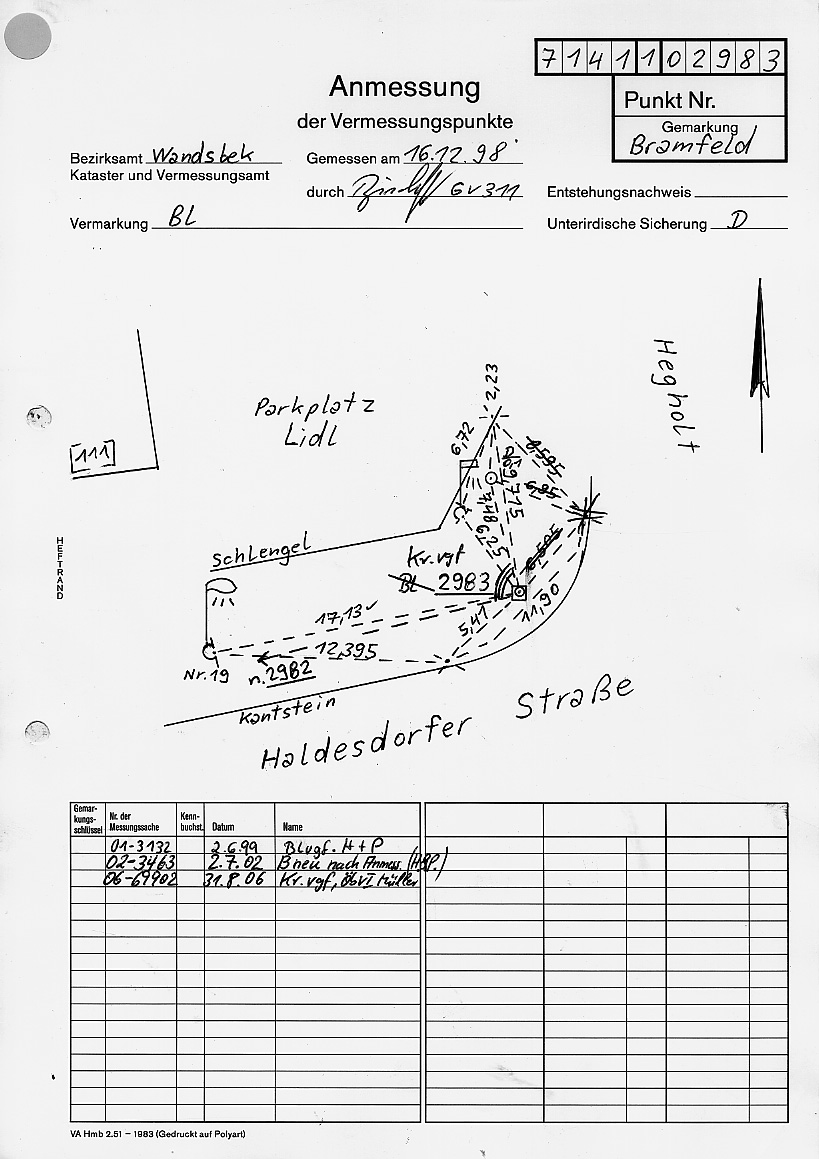 7141102983
Anmessung
der Vermessungspunkte
Punkt Nr.
Gemarkung
Bramfeld
Bezirksamt Wandsbek
Kataster und Vermessungsamt
Gemessen am 16.12.98
durch GV311
Entstehungsnachweis
Vermarkung BL
Unterirdische Sicherung D
Hegholt
2,23
Parkplatz
Lidl
6,72
111
8,595
6,95
9,715
3,48
6,25
6,505
HEFTRAND
Schlengel
Kr.vgf
BL 2983
17,13
11,90
5,41
12,395
Nr.19
n.2982
Kantstein
Straße
Haldesdorfer
Gemar-
kungs-
schlüssel
Nr. der
Messungssache
Kenn-
buchst.
Datum
Name
01-3132 2.6.99 BLvgf. H+P
02-3463 2.7.02 B neu nach Anmess. (H&P.)
06-69902 31.8.06 Kr.vgf, ÖbVI Müller
VA Hmb 2.51 – 1983 (Gedruckt auf Polyart)